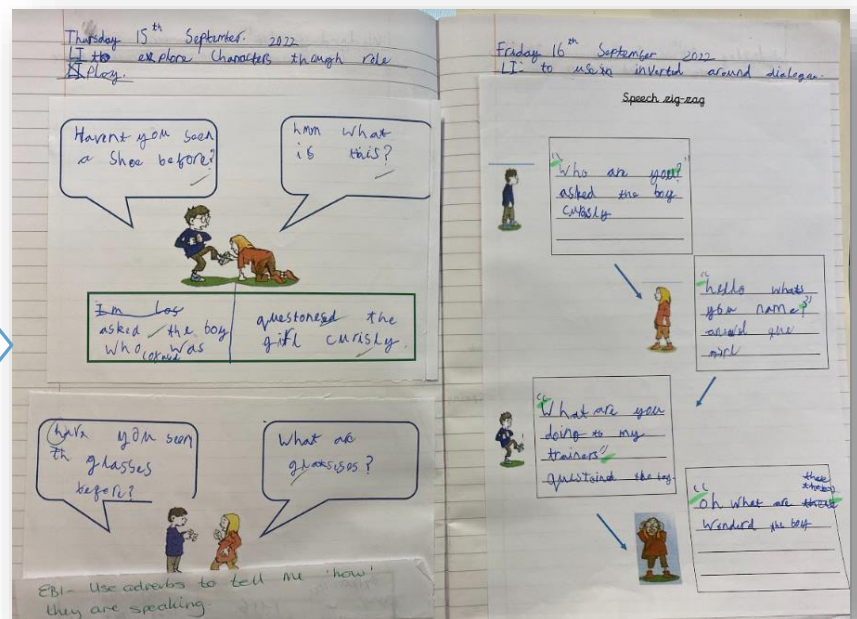 Thursday 15th September. 2022
LI to explore Characters though role
Ploy.
Havent you seen
a Shoe before?
hmm what
is this?
Im los
asked the boy
who was
questonesd the
girl curisly.
have you seen
th glasses
before?
What are
glatsises?
EBI- Use adverbs to tell me 'how'
they are speaking.
Friday 16th September 2022
LI- to use inverted around dialogue.
Speech zig-zag
"Who are you?"
asked the boy
curisly
"hello whats
you name?"
the
girl
"What are you
doing to my
trainers"
questoined the boy.
"oh what are these
wonderd the boy